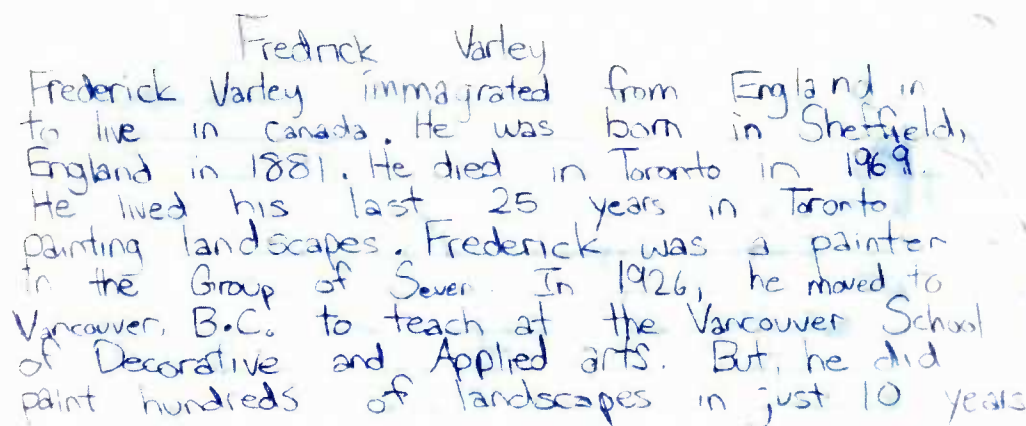 Fredrick Varley
Frederick Varley immagrated from England in
to live in canada. He was born in Sheffield,
England in 1881. He died in Toronto in 1969.
He lived his last 25 years in Toronto
painting landscapes. Frederick was a painter
in the Group of Seven. In 1926, he moved to
Vancouver, B.C. to teach at the Vancouver School
of Decorative and Applied arts. But, he did
paint hundreds of landscapes in just 10 years